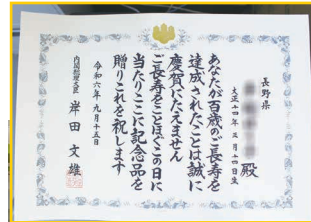 長野県
大正十四年三月十四日生
殿
あなたが百歳のご長寿を
達成されたことは誠に
慶賀にたえません
ご長寿をことほぐこの日に
当たりここに記念品を
贈りこれを祝します
令和六年九月十五日
内閣総理大臣 岸田文雄